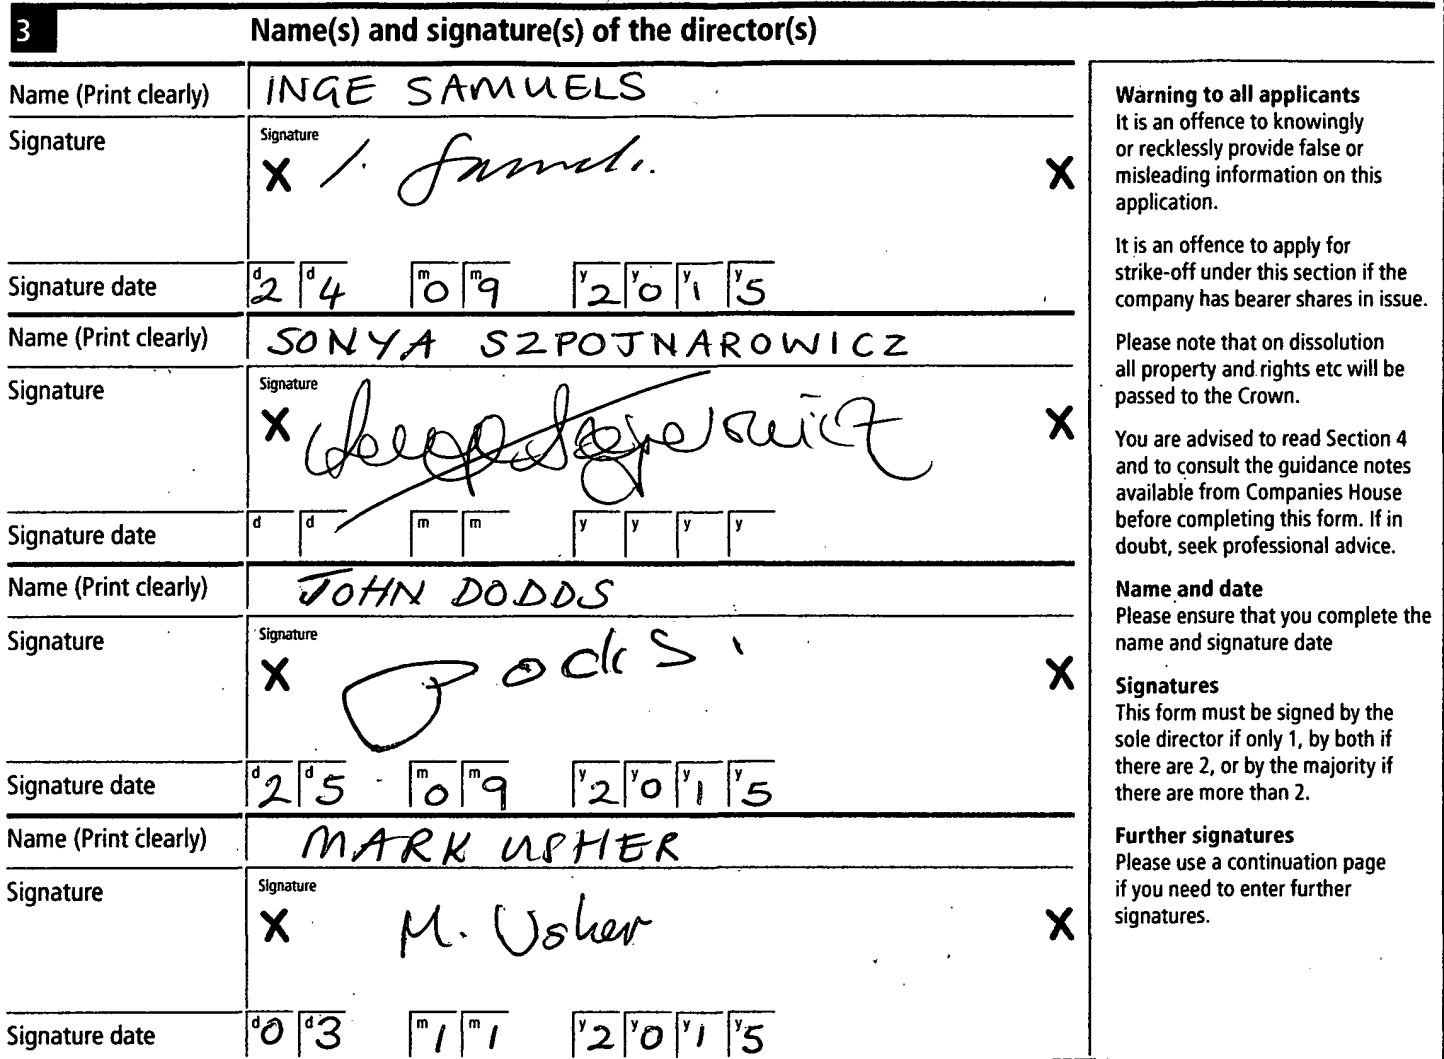 3 Name(s) and signature(s) of the director(s)
Name (Print clearly) INGE SAMUELS
Signature
Signature
X I. Samuels. X
Signature date d2 d4 m0 m9 y2 y0 y1 y5
Name (Print clearly) SONYA SZPOJNAROWICZ
Signature
Signature
X X
Signature date d d m m y y y y
Name (Print clearly) JOHN DODDS
Signature
Signature
X X
Signature date d2 d5 m0 m9 y2 y0 y1 y5
Name (Print clearly) MARK USHER
Signature
Signature
X M. Usher X
Signature date d0 d3 m1 m1 y2 y0 y1 y5
Warning to all applicants
It is an offence to knowingly
or recklessly provide false or
misleading information on this
application.
It is an offence to apply for
strike-off under this section if the
company has bearer shares in issue.
Please note that on dissolution
all property and rights etc will be
passed to the Crown.
You are advised to read Section 4
and to consult the guidance notes
available from Companies House
before completing this form. If in
doubt, seek professional advice.
Name and date
Please ensure that you complete the
name and signature date
Signatures
This form must be signed by the
sole director if only 1, by both if
there are 2, or by the majority if
there are more than 2.
Further signatures
Please use a continuation page
if you need to enter further
signatures.